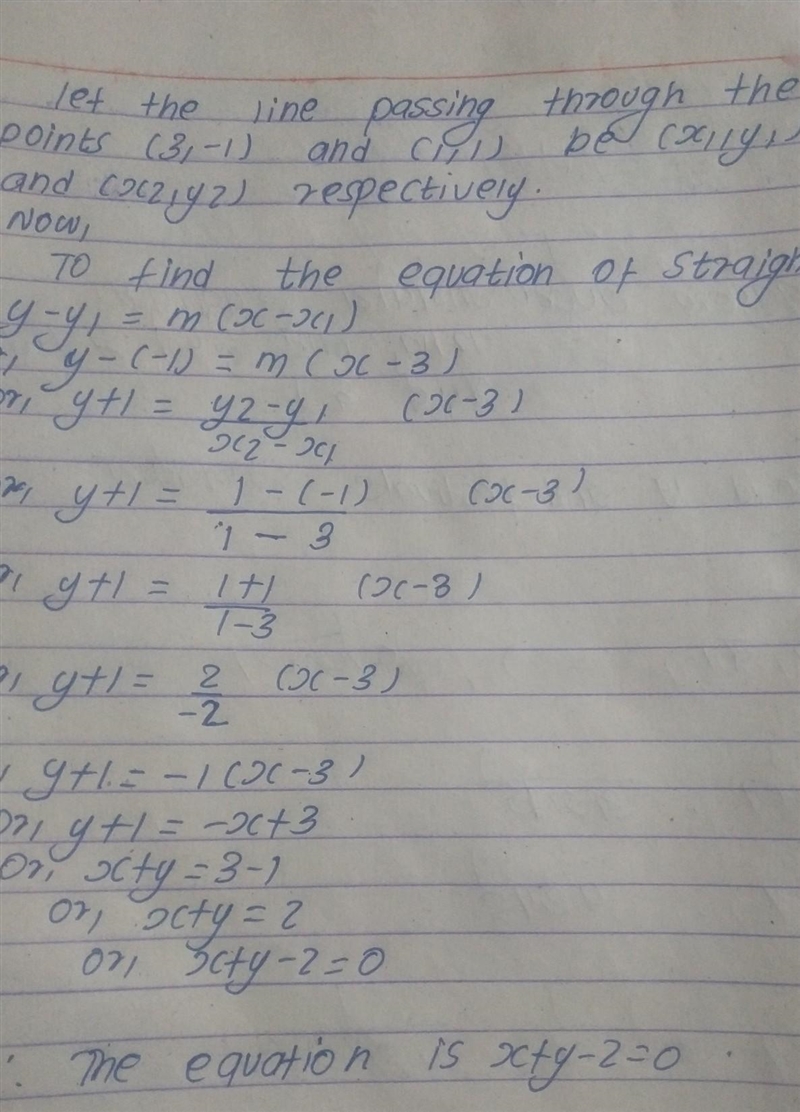 let the line passing through the
points (3,-1) and (1,1) be (x1,y1)
and (x2,y2) respectively.
Now,
To find the equation of Straigh
y-y1 = m(x-x1)
, y-(-1) = m(x-3)
or, y+1 = y2-y1/x2-x1 (x-3)
or, y+1 = 1-(-1)/1-3 (x-3)
r, y+1 = 1+1/1-3 (x-3)
, y+1 = 2/-2 (x-3)
, y+1 = -1(x-3)
or, y+1 = -x+3
Or, x+y = 3-1
or, x+y = 2
or, x+y-2=0
: The equation is x+y-2=0.